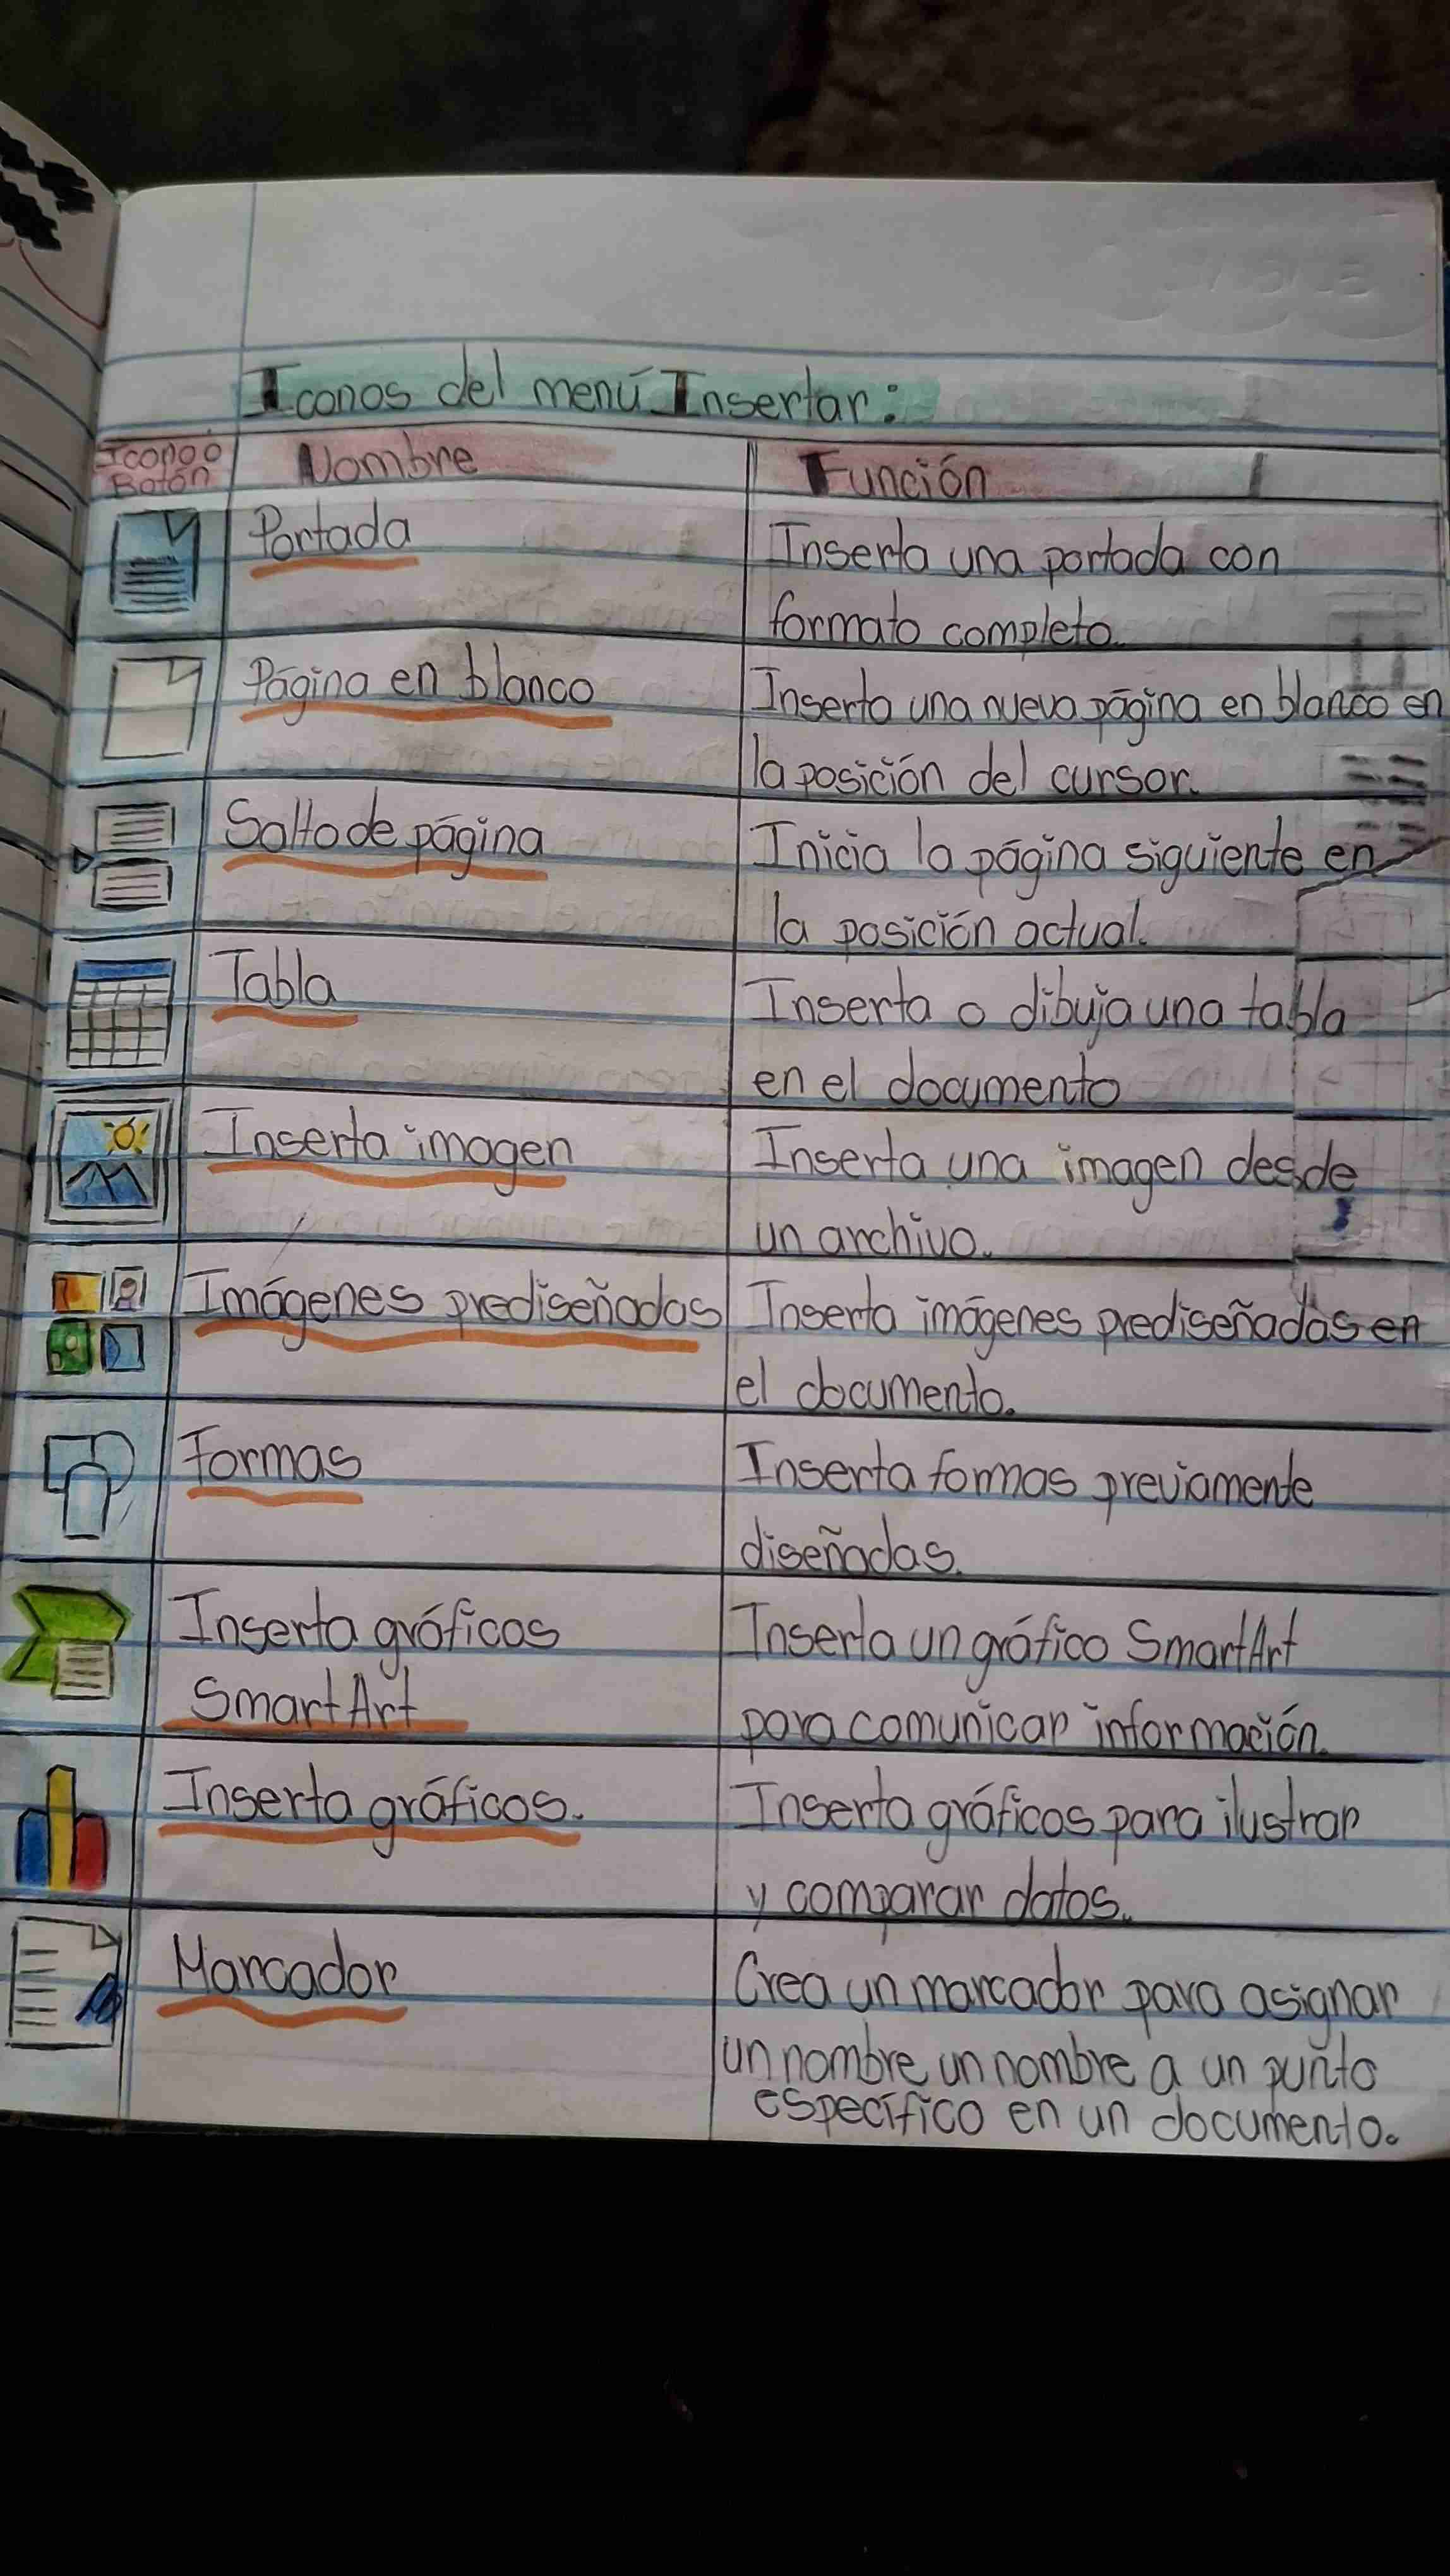 Iconos del menú Insertar:
Icono o
Botón
Nombre
Función
Portada
Inserta una portada con
formato completo.
Página en blanco
Inserta una nueva página en blanco en
la posición del cursor.
Salto de página
Inicia la página siguiente en
la posición actual.
Tabla
Inserta o dibuja una tabla
en el documento
Inserta imagen
Inserta una imagen desde
un archivo.
Imágenes prediseñadas
Inserta imágenes prediseñadas en
el documento.
Formas
Inserta formas previamente
diseñadas.
Inserta gráficos
SmartArt
Inserta un gráfico SmartArt
para comunicar información.
Inserta gráficos.
Inserta gráficos para ilustrar
y comparar datos.
Marcador
Crea un marcador para asignar
un nombre un nombre a un punto
específico en un documento.